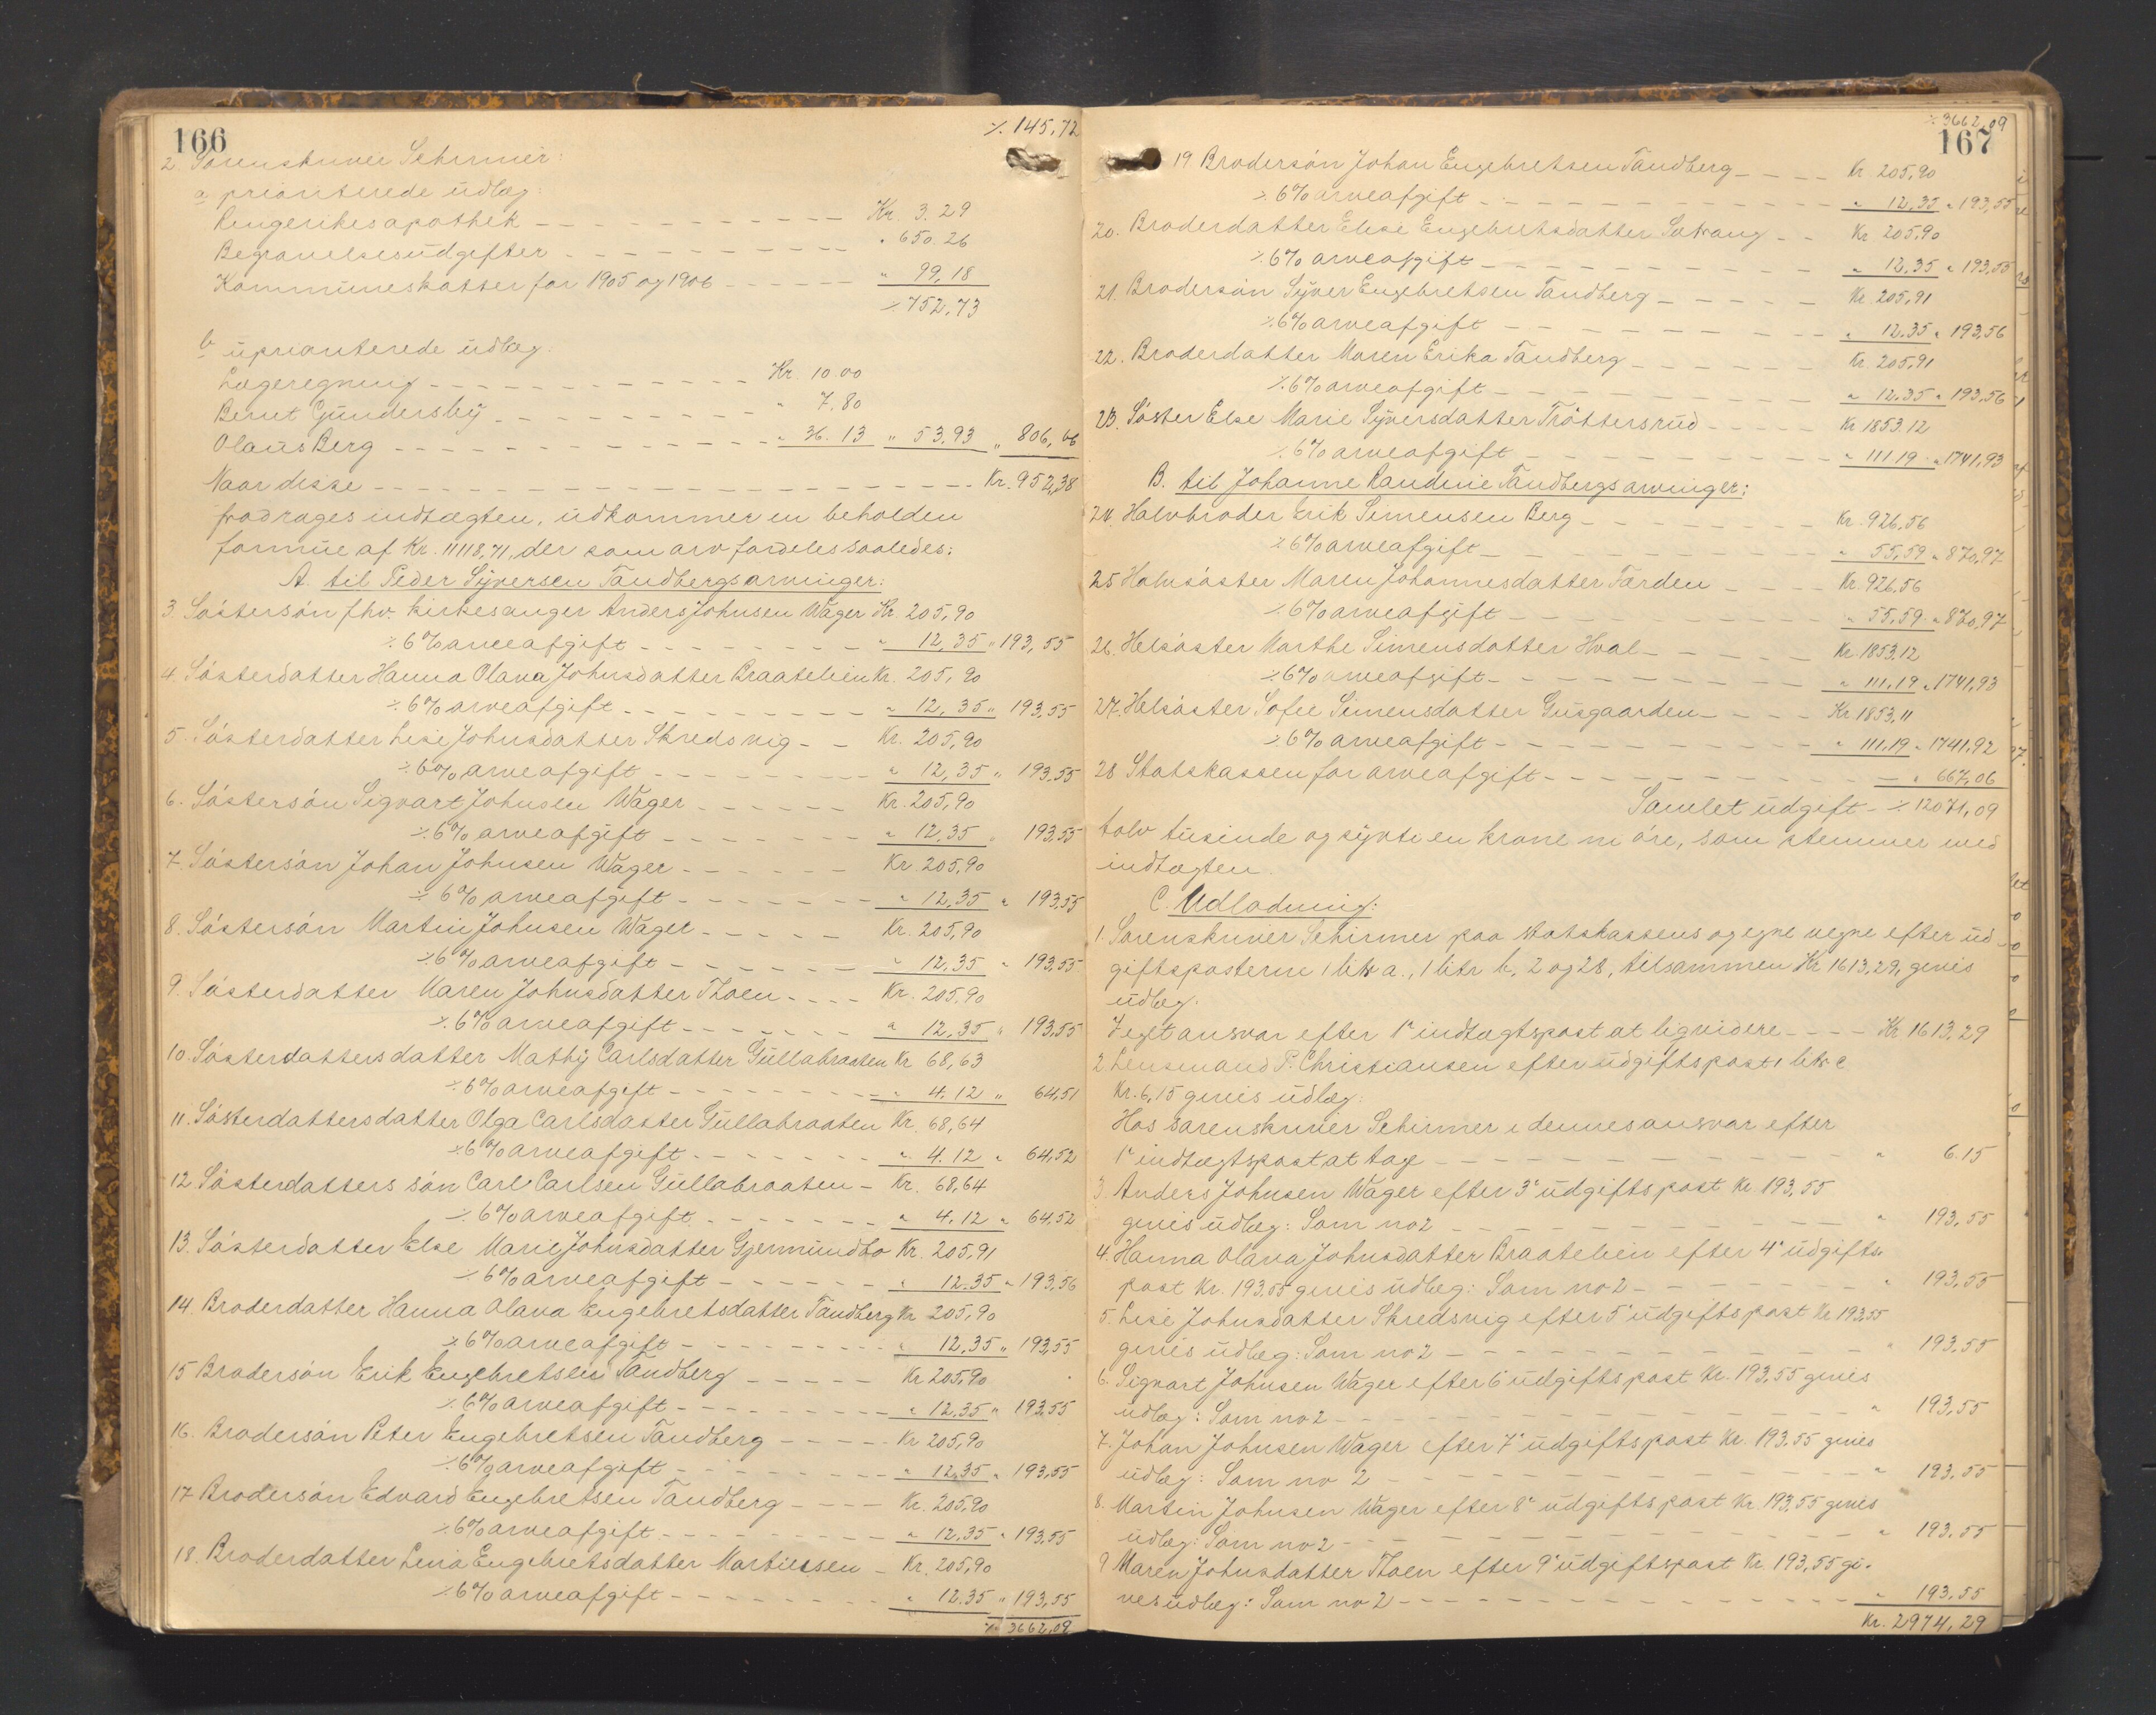 166
٪ 145,72
2 Sorenskriver Schirmer:
a prioriterede udlæg:
Ringerikes apothek Kr. 3.29
Begravelsesudgifter " 650.26
Kommuneskatter for 1905 og 1906 " 99,18
٪ 752,73
b uprioriterede udlæg.
Lægeregning Kr. 10.00
Bernt Gundersby " 7.80
Olaus Berg " 36.13 " 53,93 " 806,66
Naar disse Kr. 952,38
fradrages indtægten, udkommer en beholden
formue af Kr. 11118,71, der som arv fordeles saaledes:
A. til Peder Syversen Tandbergs arvinger:
3. Söstersön fhv. kirkesanger Anders Johnsen Wager Kr. 205,90
٪ 6% arveafgift " 12,35 " 193,55
4. Sösterdatter Hanna Olava Johnsdatter Braatelien Kr. 205,90
٪ 6% arveafgift " 12,35 " 193,55
5. Sösterdatter Lise Johnsdatter Skredsvig Kr. 205,90
٪ 6% arveafgift " 12,35 " 193,55
6. Söstersön Sigvart Johnsen Wager Kr. 205,90
٪ 6% arveafgift " 12,35 " 193,55
7. Söstersön Johan Johnsen Wager Kr 205,90
٪ 6% arveafgift " 12,35 " 193,55
8. Söstersön Martin Johnsen Wager Kr. 205,90
٪ 6% arveafgift " 12,35 " 193,55
9. Sösterdatter Maren Johnsdatter Thoen Kr. 205,90
٪ 6% arveafgift " 12,35 " 193,55
10. Sösterdatters datter Mathy Carlsdatter Gullabraaten Kr 68,63
٪ 6% arveafgift " 4.12 " 64,51
11. Sösterdatters datter Olga Carlsdatter Gullabraaten Kr. 68,64
٪ 6% arveafgift " 4.12 " 64,52
12 Sösterdatters sön Carl Carlsen Gullabraaten Kr. 68,64
٪ 6% arveafgift " 4.12 " 64,52
13. Sösterdatter Else Marie Johnsdatter Gjermundbo Kr. 205,91
٪ 6% arveafgift " 12.35 " 193,56
14. Broderdatter Hanna Olava Engebretsdatter Tandberg Kr 205,90
٪ 6% arveafgift " 12,35 " 193,55
15 Brodersön Erik Engebretsen Tandberg Kr 205,90
٪ 6% arveafgift " 12,35 " 193,55
16. Brodersön Peter Engebretsen Tandberg Kr 205,90
٪ 6% arveafgift " 12,35 " 193,55
17 Brodersön Edvard Engebretsen Tandberg Kr. 205,90
٪ 6% arveafgift " 12,35 " 193,55
18. Broderdatter Lina Engebretsdatter Martinsen Kr. 205,90
٪ 6% arveafgift " 12.35 " 193,55
٪ 3662,09
٪ 3662,09
167
19 Brodersön Johan Engebretsen Tandberg Kr 205,90
٪ 6% arveafgift " 12,35 " 193,55
20. Broderdatter Elise Engebretsdatter Kr 205,90
٪ 6% arveafgift " 12,35 " 193,55
21. Brodersön Syver Engebretsen Tandberg Kr 205,91
٪ 6% arveafgift " 12.35 " 193,56
22. Broderdatter Maren Erika Tandberg Kr. 205,91
٪ 6% arveafgift " 12.35 " 193,56
23. Söster Else Marie Syversdatter Tröttersrud Kr 1853.12
٪ 6% arveafgift " 111.19 " 1741,93
B. til Johanne Randine Tandbergs arvinger:
24. Halvbroder Erik Simensen Berg Kr. 926,56
٪ 6% arveafgift " 55,59 " 870,97
25 Halvsöster Maren Johannesdatter Færden Kr. 926,56
٪ 6% arveafgift " 55,59 " 870,97
26. Helsöster Marthe Simensdatter Hval Kr. 1853,12
٪ 6% arveafgift " 111.19 " 1741,93
27. Helsöster Sofie Simensdatter Gusgaarden Kr. 1853,11
٪ 6% arveafgift " 111,19 " 1741,92
28 Statskassen for arveafgift " 667,06
Samlet udgift ٪ 12071,09
tolv tusinde og sytti en krone ni öre, som stemmer med
indtægten.
C. Udlodning:
1. Sorenskriver Schirmer paa statskassens og egne vegne efter ud-
giftsposterne 1 litr a., 1 litr b, 2 og 28, tilsammen Kr 1613,29, gives
udlæg.
I eget ansvar efter 1' indtægtspost at liqvidere Kr 1613,29
2 Lensmand P. Christiansen efter udgiftspost 1 litr c
Kr. 6,15 gives udlæg:
Hos sorenskriver Schirmer i dennes ansvar efter
1' indtægtspost at tage " 6.15
3. Anders Johnsen Wager efter 3' udgiftspost Kr. 193,55
gives udlæg: Som no 2 " 193,55
4. Hanna Olava Johnsdatter Braatelien efter 4' udgifts-
post Kr. 193.55 gives udlæg: Som no 2 " 193,55
5. Lise Johnsdatter Skredsvig efter 5' udgiftspost Kr 193,55
gives udlæg: Som no 2 " 193,55
6. Sigvart Johnsen Wager efter 6' udgiftspost Kr. 193,55 gives
udlæg: Som no 2 " 193,55
7. Johan Johnsen Wager efter 7' udgiftspost Kr. 193,55 gives
udlæg: Som no 2 " 193,55
8. Martin Johnsen Wager efter 8' udgiftspost Kr 193,55 gives
udlæg: Som no 2 " 193,55
9 Maren Johnsdatter Thoen efter 9' udgiftspost Kr. 193,55 gi-
ves udlæg: Som no 2 " 193,55
Kr. 2974,29